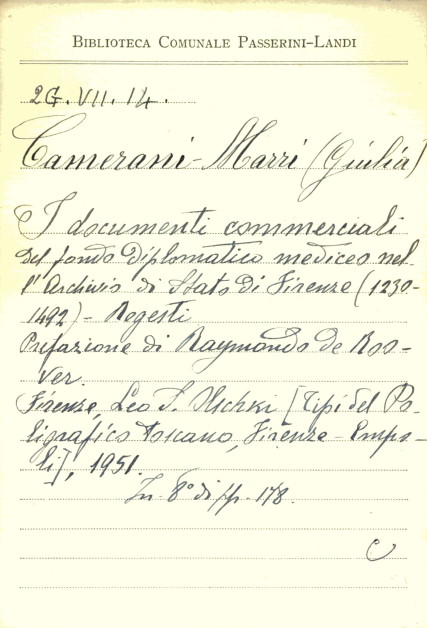 BIBLIOTECA COMUNALE PASSERINI-LANDI
2G.VII.14.
Camerani-Marri (Giulia)
I documenti commerciali
del fondo diplomatico mediceo nel
l'Archivio di Stato di Firenze (1230-
1492) - Regesti
Prefazione di Raymondo de Roo-
ver.
Firenze, Leo S. Olschki [Tipi del Po-
ligrafico Toscano, Firenze - Empo-
li], 1951.
In 8° di pp. 178.
C